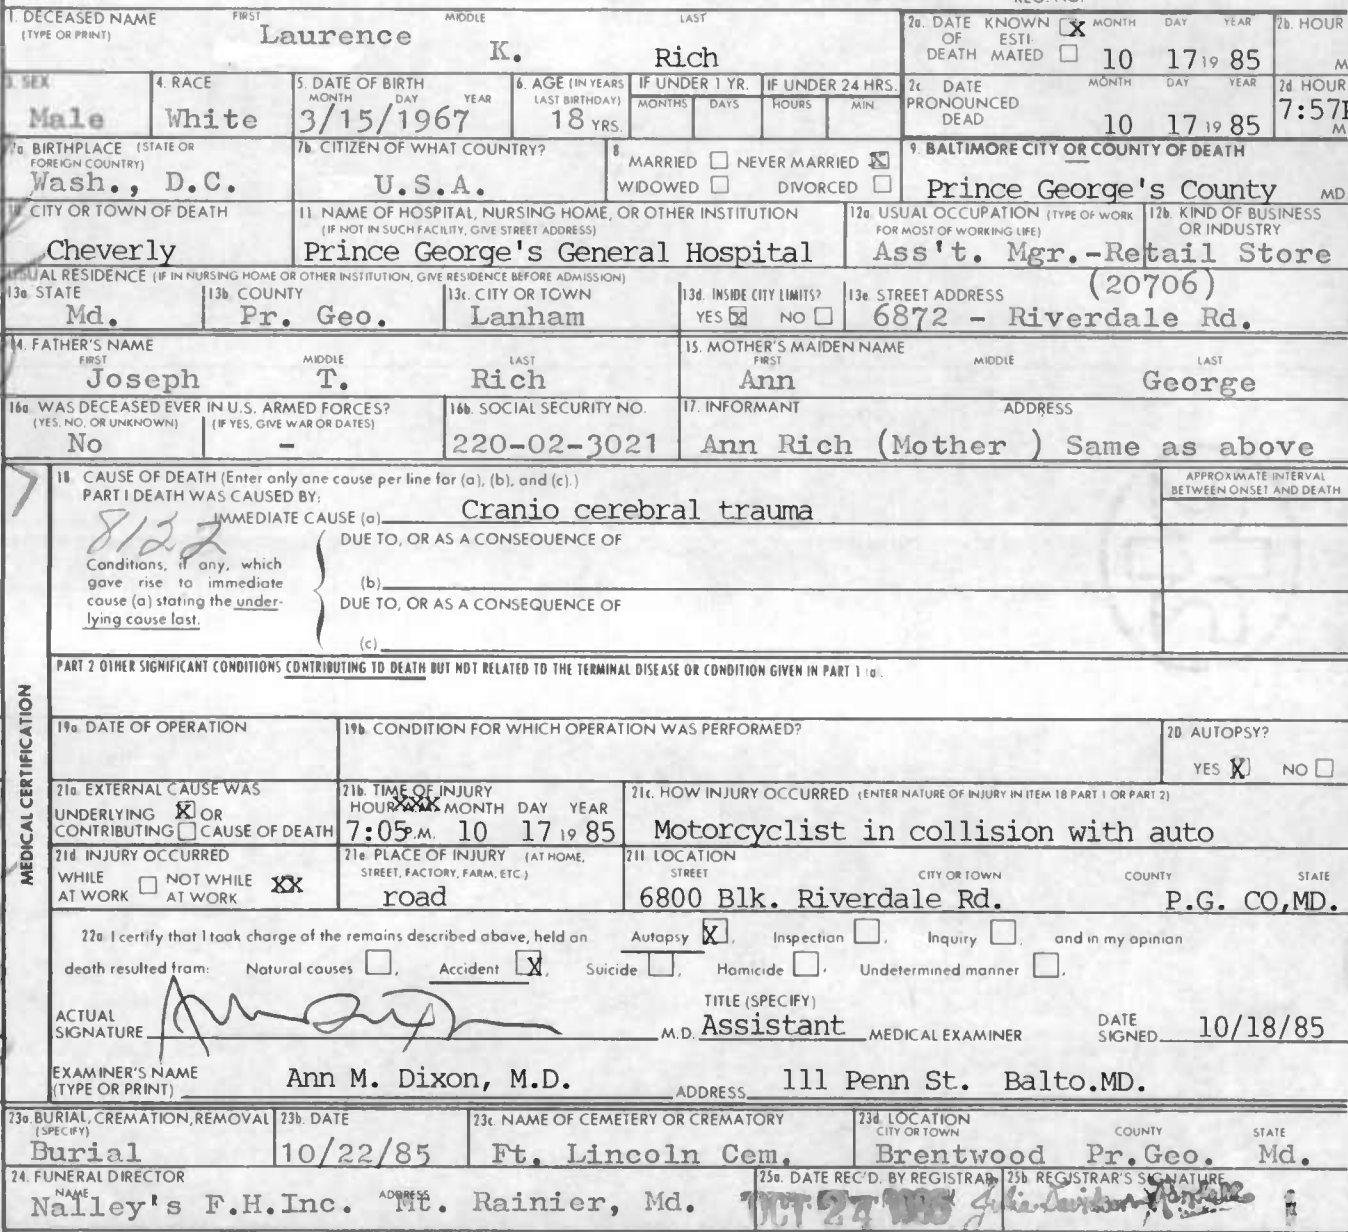 1. DECEASED NAME FIRST MIDDLE LAST
(TYPE OR PRINT) Laurence K. Rich
2a. DATE KNOWN X MONTH DAY YEAR
OF ESTI-
DEATH MATED 10 17 19 85
2b. HOUR
M
3. SEX
Male
4. RACE
White
5. DATE OF BIRTH
MONTH DAY YEAR
3/15/1967
6. AGE (IN YEARS
LAST BIRTHDAY)
18 YRS.
IF UNDER 1 YR.
MONTHS DAYS
IF UNDER 24 HRS.
HOURS MIN.
2c. DATE MONTH DAY YEAR
PRONOUNCED
DEAD 10 17 19 85
2d HOUR
7:57P
M
7a. BIRTHPLACE (STATE OR
FOREIGN COUNTRY)
Wash., D.C.
7b. CITIZEN OF WHAT COUNTRY?
U.S.A.
8
MARRIED NEVER MARRIED X
WIDOWED DIVORCED
9. BALTIMORE CITY OR COUNTY OF DEATH
Prince George's County MD
10 CITY OR TOWN OF DEATH
Cheverly
11 NAME OF HOSPITAL, NURSING HOME, OR OTHER INSTITUTION
(IF NOT IN SUCH FACILITY, GIVE STREET ADDRESS)
Prince George's General Hospital
12a USUAL OCCUPATION (TYPE OF WORK
FOR MOST OF WORKING LIFE)
12b. KIND OF BUSINESS
OR INDUSTRY
Ass't. Mgr.-Retail Store
USUAL RESIDENCE (IF IN NURSING HOME OR OTHER INSTITUTION, GIVE RESIDENCE BEFORE ADMISSION)
13a. STATE
Md.
13b. COUNTY
Pr. Geo.
13c. CITY OR TOWN
Lanham
13d. INSIDE CITY LIMITS?
YES X NO
13e. STREET ADDRESS (20706)
6872 - Riverdale Rd.
14. FATHER'S NAME
FIRST MIDDLE LAST
Joseph T. Rich
15. MOTHER'S MAIDEN NAME
FIRST MIDDLE LAST
Ann George
16a. WAS DECEASED EVER IN U.S. ARMED FORCES?
(YES, NO, OR UNKNOWN) (IF YES, GIVE WAR OR DATES)
No -
16b. SOCIAL SECURITY NO.
220-02-3021
17. INFORMANT ADDRESS
Ann Rich (Mother ) Same as above
18. CAUSE OF DEATH (Enter only one cause per line for (a), (b), and (c).)
PART I DEATH WAS CAUSED BY:
APPROXIMATE INTERVAL
BETWEEN ONSET AND DEATH
IMMEDIATE CAUSE (a) Cranio cerebral trauma
8122
DUE TO, OR AS A CONSEQUENCE OF
Conditions, if any, which
gave rise to immediate
cause (a) stating the under-
lying cause last.
(b)
DUE TO, OR AS A CONSEQUENCE OF
(c)
PART 2 OTHER SIGNIFICANT CONDITIONS CONTRIBUTING TO DEATH BUT NOT RELATED TO THE TERMINAL DISEASE OR CONDITION GIVEN IN PART 1 (a).
MEDICAL CERTIFICATION
19a. DATE OF OPERATION
19b. CONDITION FOR WHICH OPERATION WAS PERFORMED?
20. AUTOPSY?
YES X NO
21a. EXTERNAL CAUSE WAS
UNDERLYING X OR
CONTRIBUTING CAUSE OF DEATH
21b. TIME OF INJURY
HOUR XXX MONTH DAY YEAR
7:05 P.M. 10 17 19 85
21c. HOW INJURY OCCURRED (ENTER NATURE OF INJURY IN ITEM 18 PART 1 OR PART 2)
Motorcyclist in collision with auto
21d. INJURY OCCURRED
WHILE NOT WHILE XX
AT WORK AT WORK
21e. PLACE OF INJURY (AT HOME,
STREET, FACTORY, FARM, ETC.)
road
21f. LOCATION
STREET CITY OR TOWN COUNTY STATE
6800 Blk. Riverdale Rd. P.G. CO,MD.
22a. I certify that I took charge of the remains described above, held an Autopsy X, Inspection , Inquiry , and in my opinion
death resulted from: Natural causes , Accident X, Suicide , Homicide , Undetermined manner .
ACTUAL
SIGNATURE M.D.
TITLE (SPECIFY)
Assistant MEDICAL EXAMINER
DATE
SIGNED 10/18/85
EXAMINER'S NAME
(TYPE OR PRINT) Ann M. Dixon, M.D. ADDRESS 111 Penn St. Balto.MD.
23a. BURIAL, CREMATION, REMOVAL
(SPECIFY)
Burial
23b. DATE
10/22/85
23c. NAME OF CEMETERY OR CREMATORY
Ft. Lincoln Cem.
23d. LOCATION
CITY OR TOWN COUNTY STATE
Brentwood Pr.Geo. Md.
24. FUNERAL DIRECTOR
NAME ADDRESS
Nalley's F.H.Inc. Mt. Rainier, Md.
25a. DATE REC'D. BY REGISTRAR
OCT 24
25b. REGISTRAR'S SIGNATURE
Julia Davidson